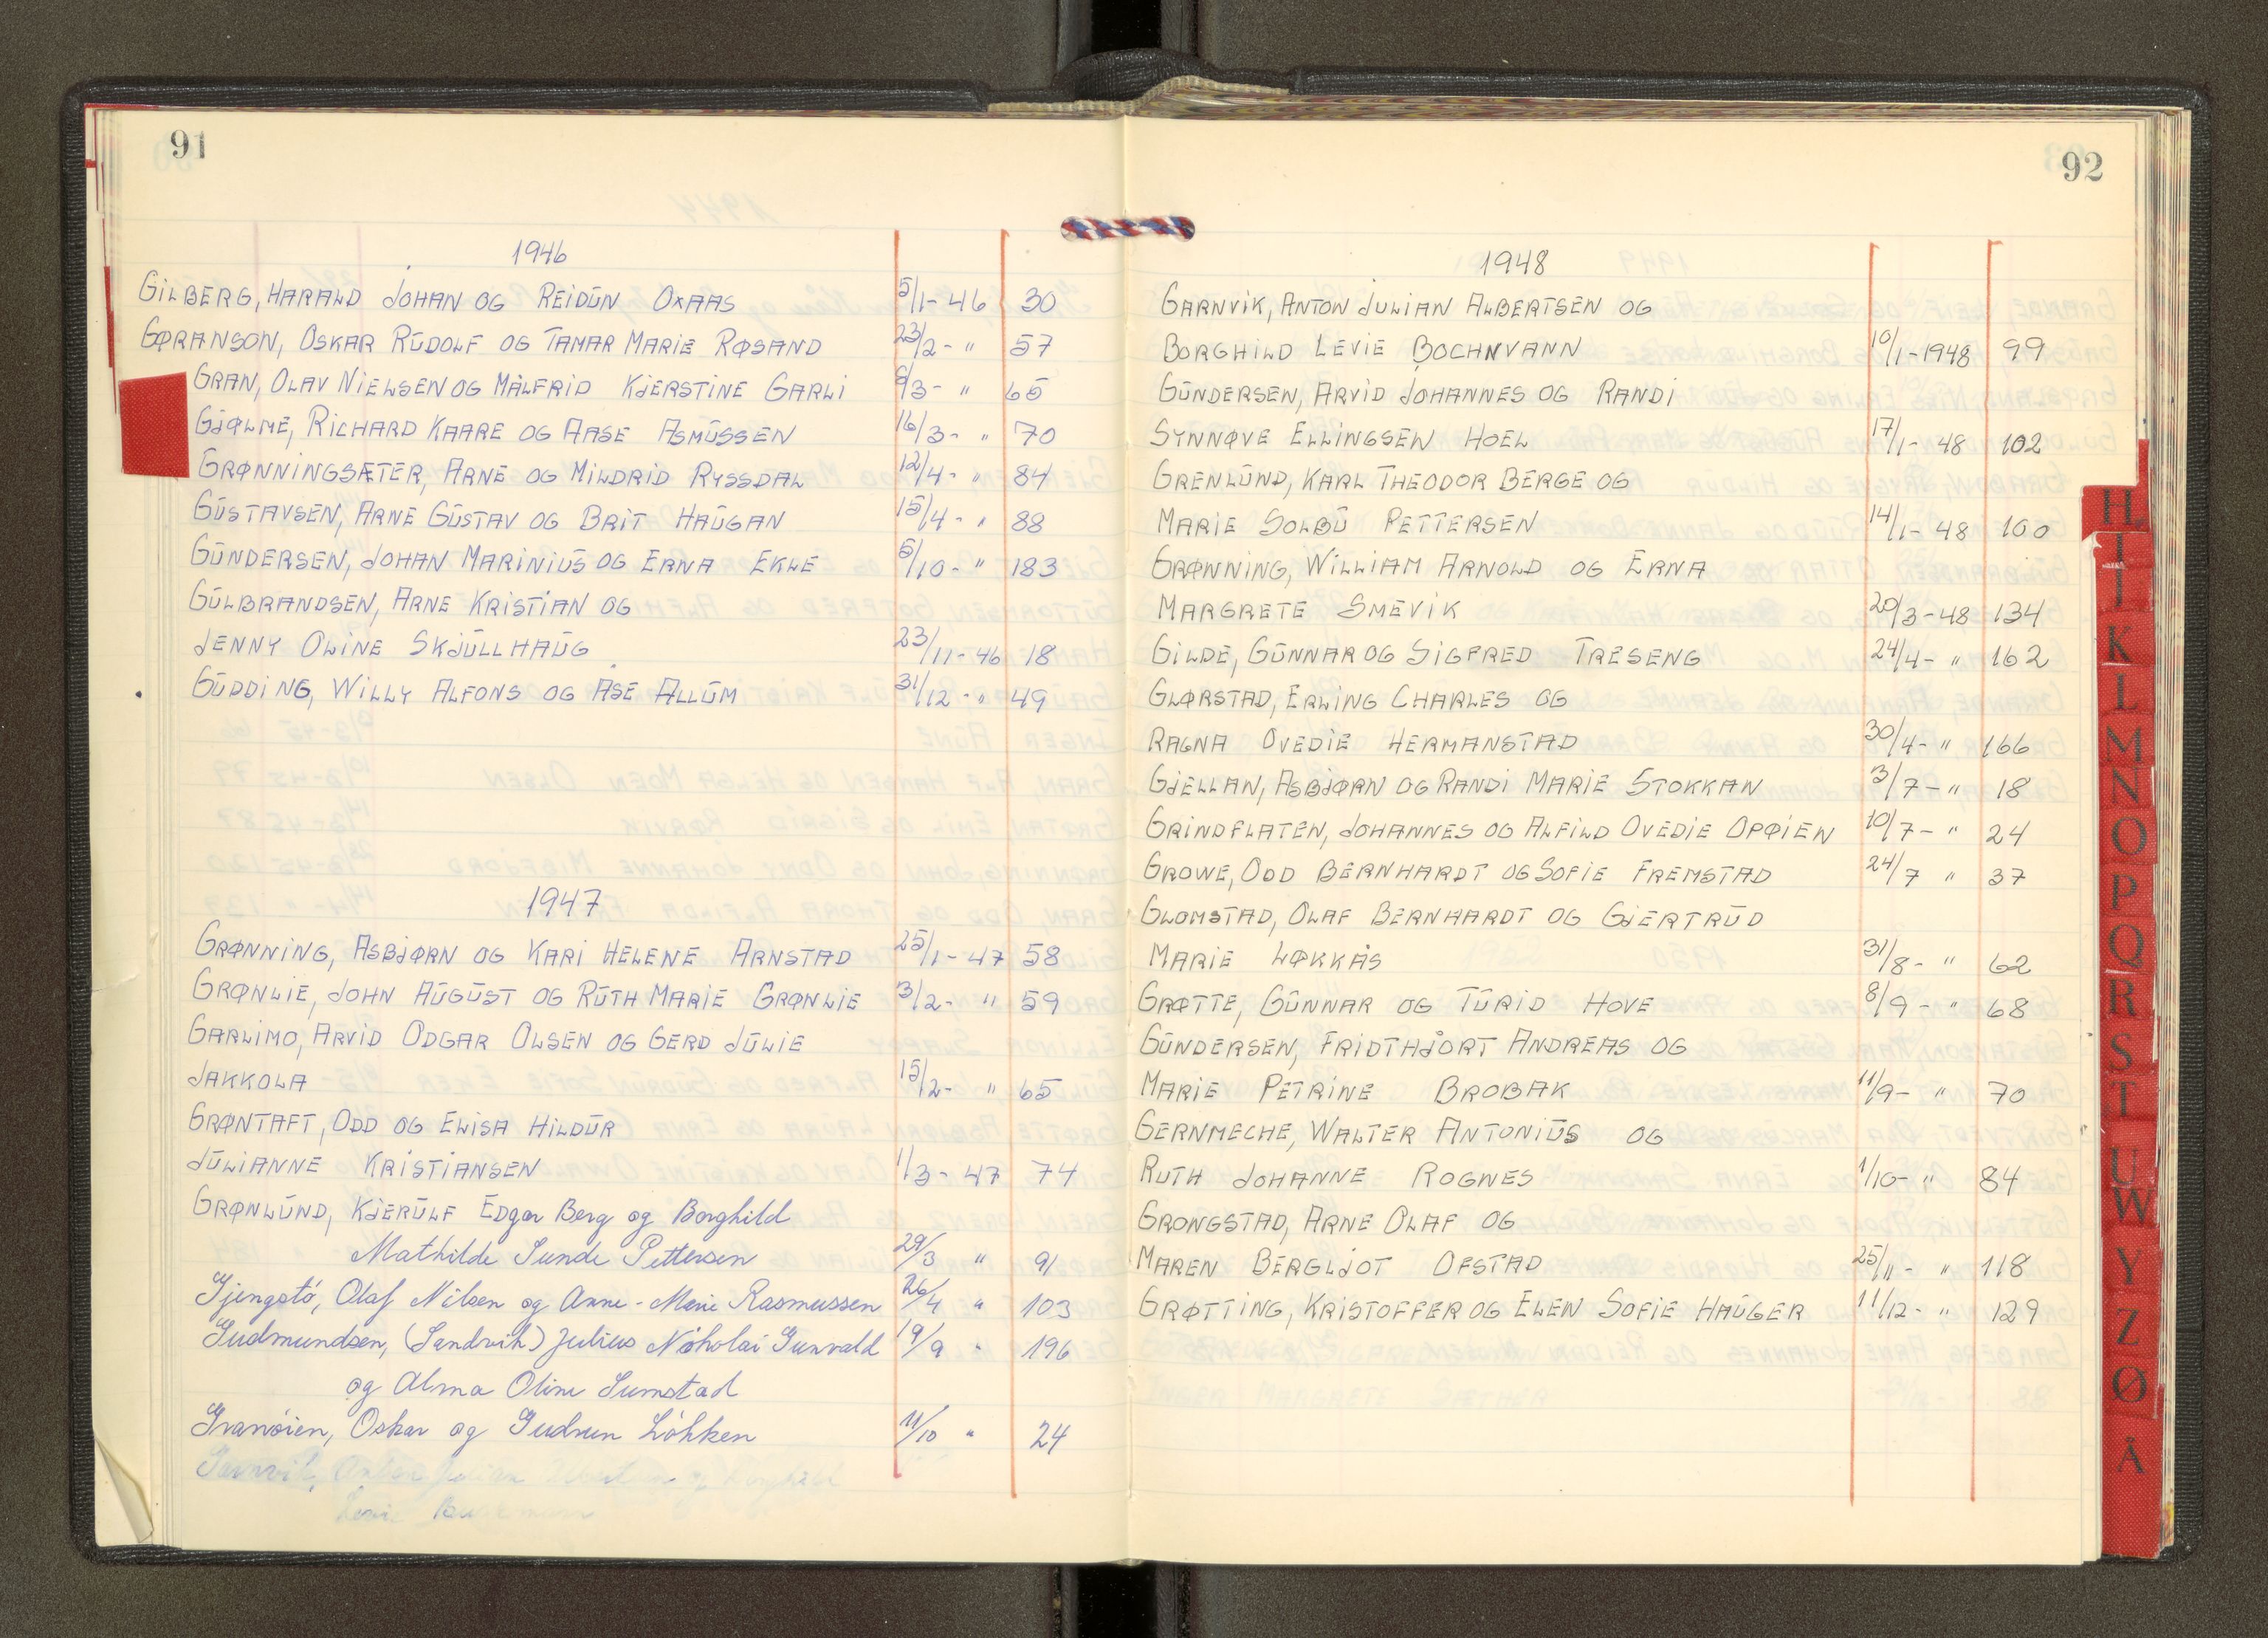 91
1946
GILBERG, HARALD JOHAN OG REIDŪN OXAAS 5/1-46 30
GØRANSON, OSKAR RŪDOLF OG TAMAR MARIE RØSAND 23/2- " 57
GRAN, OLAV NIELSEN OG MÅLFRID KJERSTINE GARLI 9/3- " 65
GJØLME, RICHARD KAARE OG AASE ASMŪSSEN 16/3- " 70
GRØNNINGSÆTER, ARNE OG MILDRID RYSSDAL 12/4- " 84
GŪSTAVSEN, ARNE GŪSTAV OG BRIT HAŪGAN 15/4- " 88
GŪNDERSEN, JOHAN MARINIŪS OG ERNA EKLE 5/10- " 183
GŪLBRANDSEN, ARNE KRISTIAN OG
JENNY OLINE SKJŪLLHAŪG 23/11-46 18
GŪDDING, WILLY ALFONS OG ASE ALLŪM 31/12- " 49
1947
GRØNNING, ASBJØRN OG KARI HELENE ARNSTAD 25/1-47 58
GRØNLIE, JOHN AŪGŪST OG RŪTH MARIE GRØNLIE 3/2- " 59
GARLIMO, ARVID ODGAR OLSEN OG GERD JŪLIE
JAKKOLA 15/2- " 65
GRØNTAFT, ODD OG ELISA HILDŪR
JŪLIANNE KRISTIANSEN 1/3-47 74
GRØNLŪND, KJERŪLF Edgar Berg og Borghild
Mathilde Sunde Pettersen 29/3 " 91
Gjengstö, Olaf Nilsen og Anne-Marie Rasmussen 26/4 " 103
Gudmundsen, (Sandvik) Julius Nikolai Gunvald 19/9 " 196
og Alma Oline Sumstad
Granöien, Oskar og Gudrun Lökken 11/10 " 24
Garnvik, Anton Julian og Borghild
92
1948
GARNVIK, ANTON JULIAN ALBERTSEN OG
BORGHILD LEVIE BOCHNVANN 10/1-1948 99
GŪNDERSEN, ARVID JOHANNES OG RANDI
SYNNØVE ELLINGSEN HOEL 17/1-48 102
GRENLŪND, KARL THEODOR BERGE OG
MARIE SOLBŪ PETTERSEN 14/1-48 100
GRØNNING, WILLIAM ARNOLD OG ERNA
MARGRETE SMEVIK 20/3-48 134
GILDE, GŪNNAR OG SIGFRED TRESENG 24/4- " 162
GLØRSTAD, ERLING CHARLES OG
RAGNA OVEDIE HERMANSTAD 30/4- " 166
GJELLAN, ASBJØRN OG RANDI MARIE STOKKAN 3/7- " 18
GRINDFLATEN, JOHANNES OG ALFILD OVEDIE OPØIEN 10/7- " 24
GROWE, ODD BERNHARDT OG SOFIE FREMSTAD 24/7 " 37
GLOMSTAD, OLAF BERNHARDT OG GJERTRŪD
MARIE LØKKÅS 31/8- " 62
GRØTTE, GŪNNAR OG TŪRID HOVE 8/9- " 68
GŪNDERSEN, FRIDTHJORT ANDREAS OG
MARIE PETRINE BROBAK 11/9- " 70
GERNMECHE, WALTER ANTONIŪS OG
RUTH JOHANNE ROGNES 1/10- " 84
GRONGSTAD, ARNE OLAF OG
MAREN BERGLJOT OFSTAD 25/11- " 118
GRØTTING, KRISTOFFER OG ELEN SOFIE HAŪGER 11/12- " 129
H
I
J
K
L
M
N
O
P
Q
R
S
T
U
W
Y
Z
Ø
Å